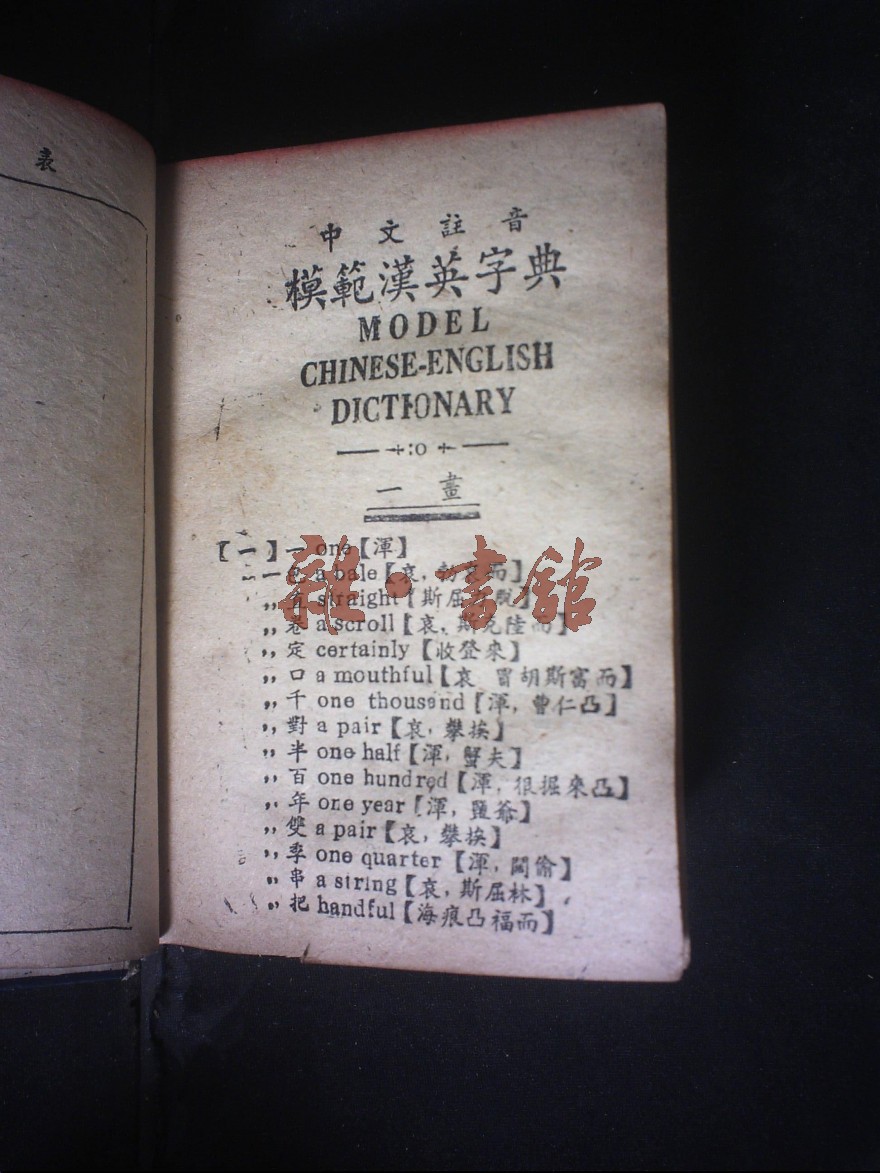 表
中文註音
模範漢英字典
MODEL
CHINESE-ENGLISH
DICTIONARY
一畫
【一】一 one【渾】
一包 a bale【哀，
〃直 straight【斯屈
〃卷 a scroll【哀，斯克陸而】
〃定 certainly【收登來】
〃口 a mouthful【哀 冒胡斯富而】
〃千 one thousand【渾，曹仁凸】
〃對 a pair【哀，攀挨】
〃半 one half【渾，蟹夫】
〃百 one hundred【渾，很掘來凸】
〃年 one year【渾，鹽爺】
〃雙 a pair【哀，攀挨】
〃季 one quarter【渾，闊偷】
〃串 a string【哀，斯屈林】
〃把 handful【海痕凸福而】
雜·書館